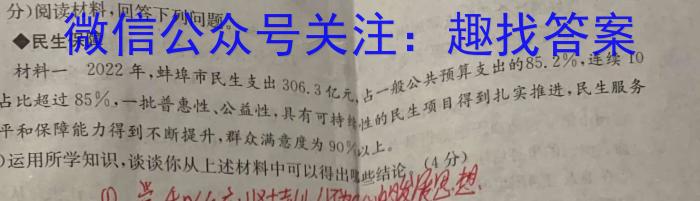 分)阅读材料,回答下列问题。
微信公众号关注：趣找答案
◆民生保障
材料一 2022年,蚌埠市民生支出306.3亿元,占一般公共预算支出的85.2%,连续10
占比超过85%,一批普惠性、公益性,具有可持续性的民生项目得到扎实推进,民生服务
平和保障能力得到不断提升,群众满意度为90%以上。
)运用所学知识,谈谈你从上述材料中可以得出哪些结论。(4分)
发展思想.